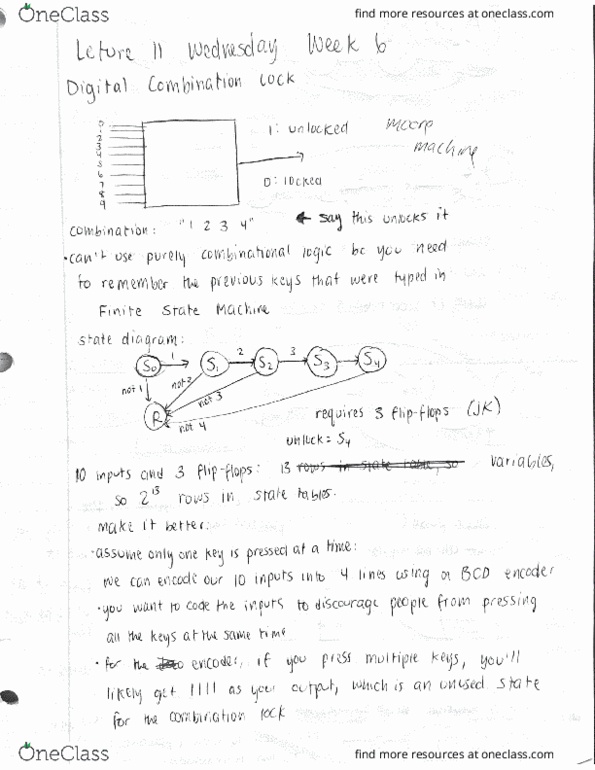 OneClass
find more resources at oneclass.com
Leture 11 Wednesday Week 6
Digital Combination Lock
0
1
2
3
4
5
6
7
8
9
1: unlocked
0: locked
moore
machine
combination: "1 2 3 4" ← say this unlocks it
• can't use purely combinational logic bc you need
to remember the previous keys that were typed in
Finite State Machine
state diagram:
S0 1 S1 2 S2 3 S3 S4
not 1 not 2 not 3
R not 4
requires 3 flip-flops (JK)
unlock = S4
10 inputs and 3 flip-flops: 13 rows in state table, so variables,
so 2^13 rows in state tables.
make it better:
• assume only one key is pressed at a time:
we can encode our 10 inputs into 4 lines using a BCD encoder
• you want to code the inputs to discourage people from pressing
all the keys at the same time
• for the encoder, if you press multiple keys, you'll
likely get 1111 as your output, which is an unused state
for the combination lock
OneClass
find more resources at oneclass.com